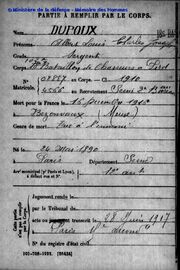 © Ministère de la défense - Mémoire des Hommes
PARTIE À REMPLIR PAR LE CORPS.
Nom DUPOUX
Prénoms Louis Charles Joseph
Grade Sergent
Corps Bataillon de Chasseurs à Pied
N° 03857 au Corps. — Cl. 1910
Matricule. 4566 au Recrutement Seine
Mort pour la France le 15 Décembre 1916
à Bezonvaux (Meuse)
Genre de mort Tué à l'ennemi
Né le 24 Mai 1890
à Paris Département Seine
Arr municipal (p Paris et Lyon), à défaut rue et N°. 10e arrt
Jugement rendu le
par le Tribunal de
acte ou jugement transcrit le 28 Juin 1917
à Paris
N° du registre d'état civil